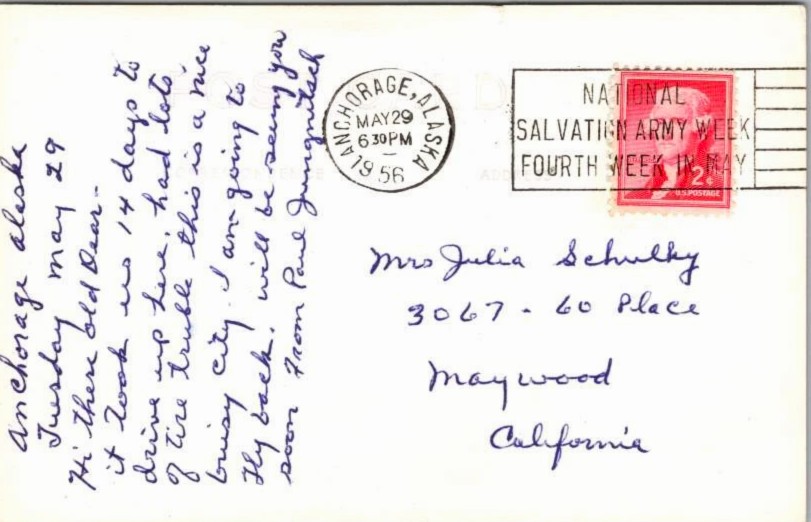 Anchorage alaska
Tuesday may 29
Hi there old Dear-
it took us 14 days to
drive up here, had lots
of tire truble this is a nice
buisy city. I am going to
fly back. will be seeing you
soon From Paul Jungnitsch
ANCHORAGE, ALASKA
MAY 29
6 30 PM
1956
NATIONAL
SALVATION ARMY WEEK
FOURTH WEEK IN MAY
2¢
U.S. POSTAGE
Mrs Julia Schulky
3067 - 60 Place
Maywood
California